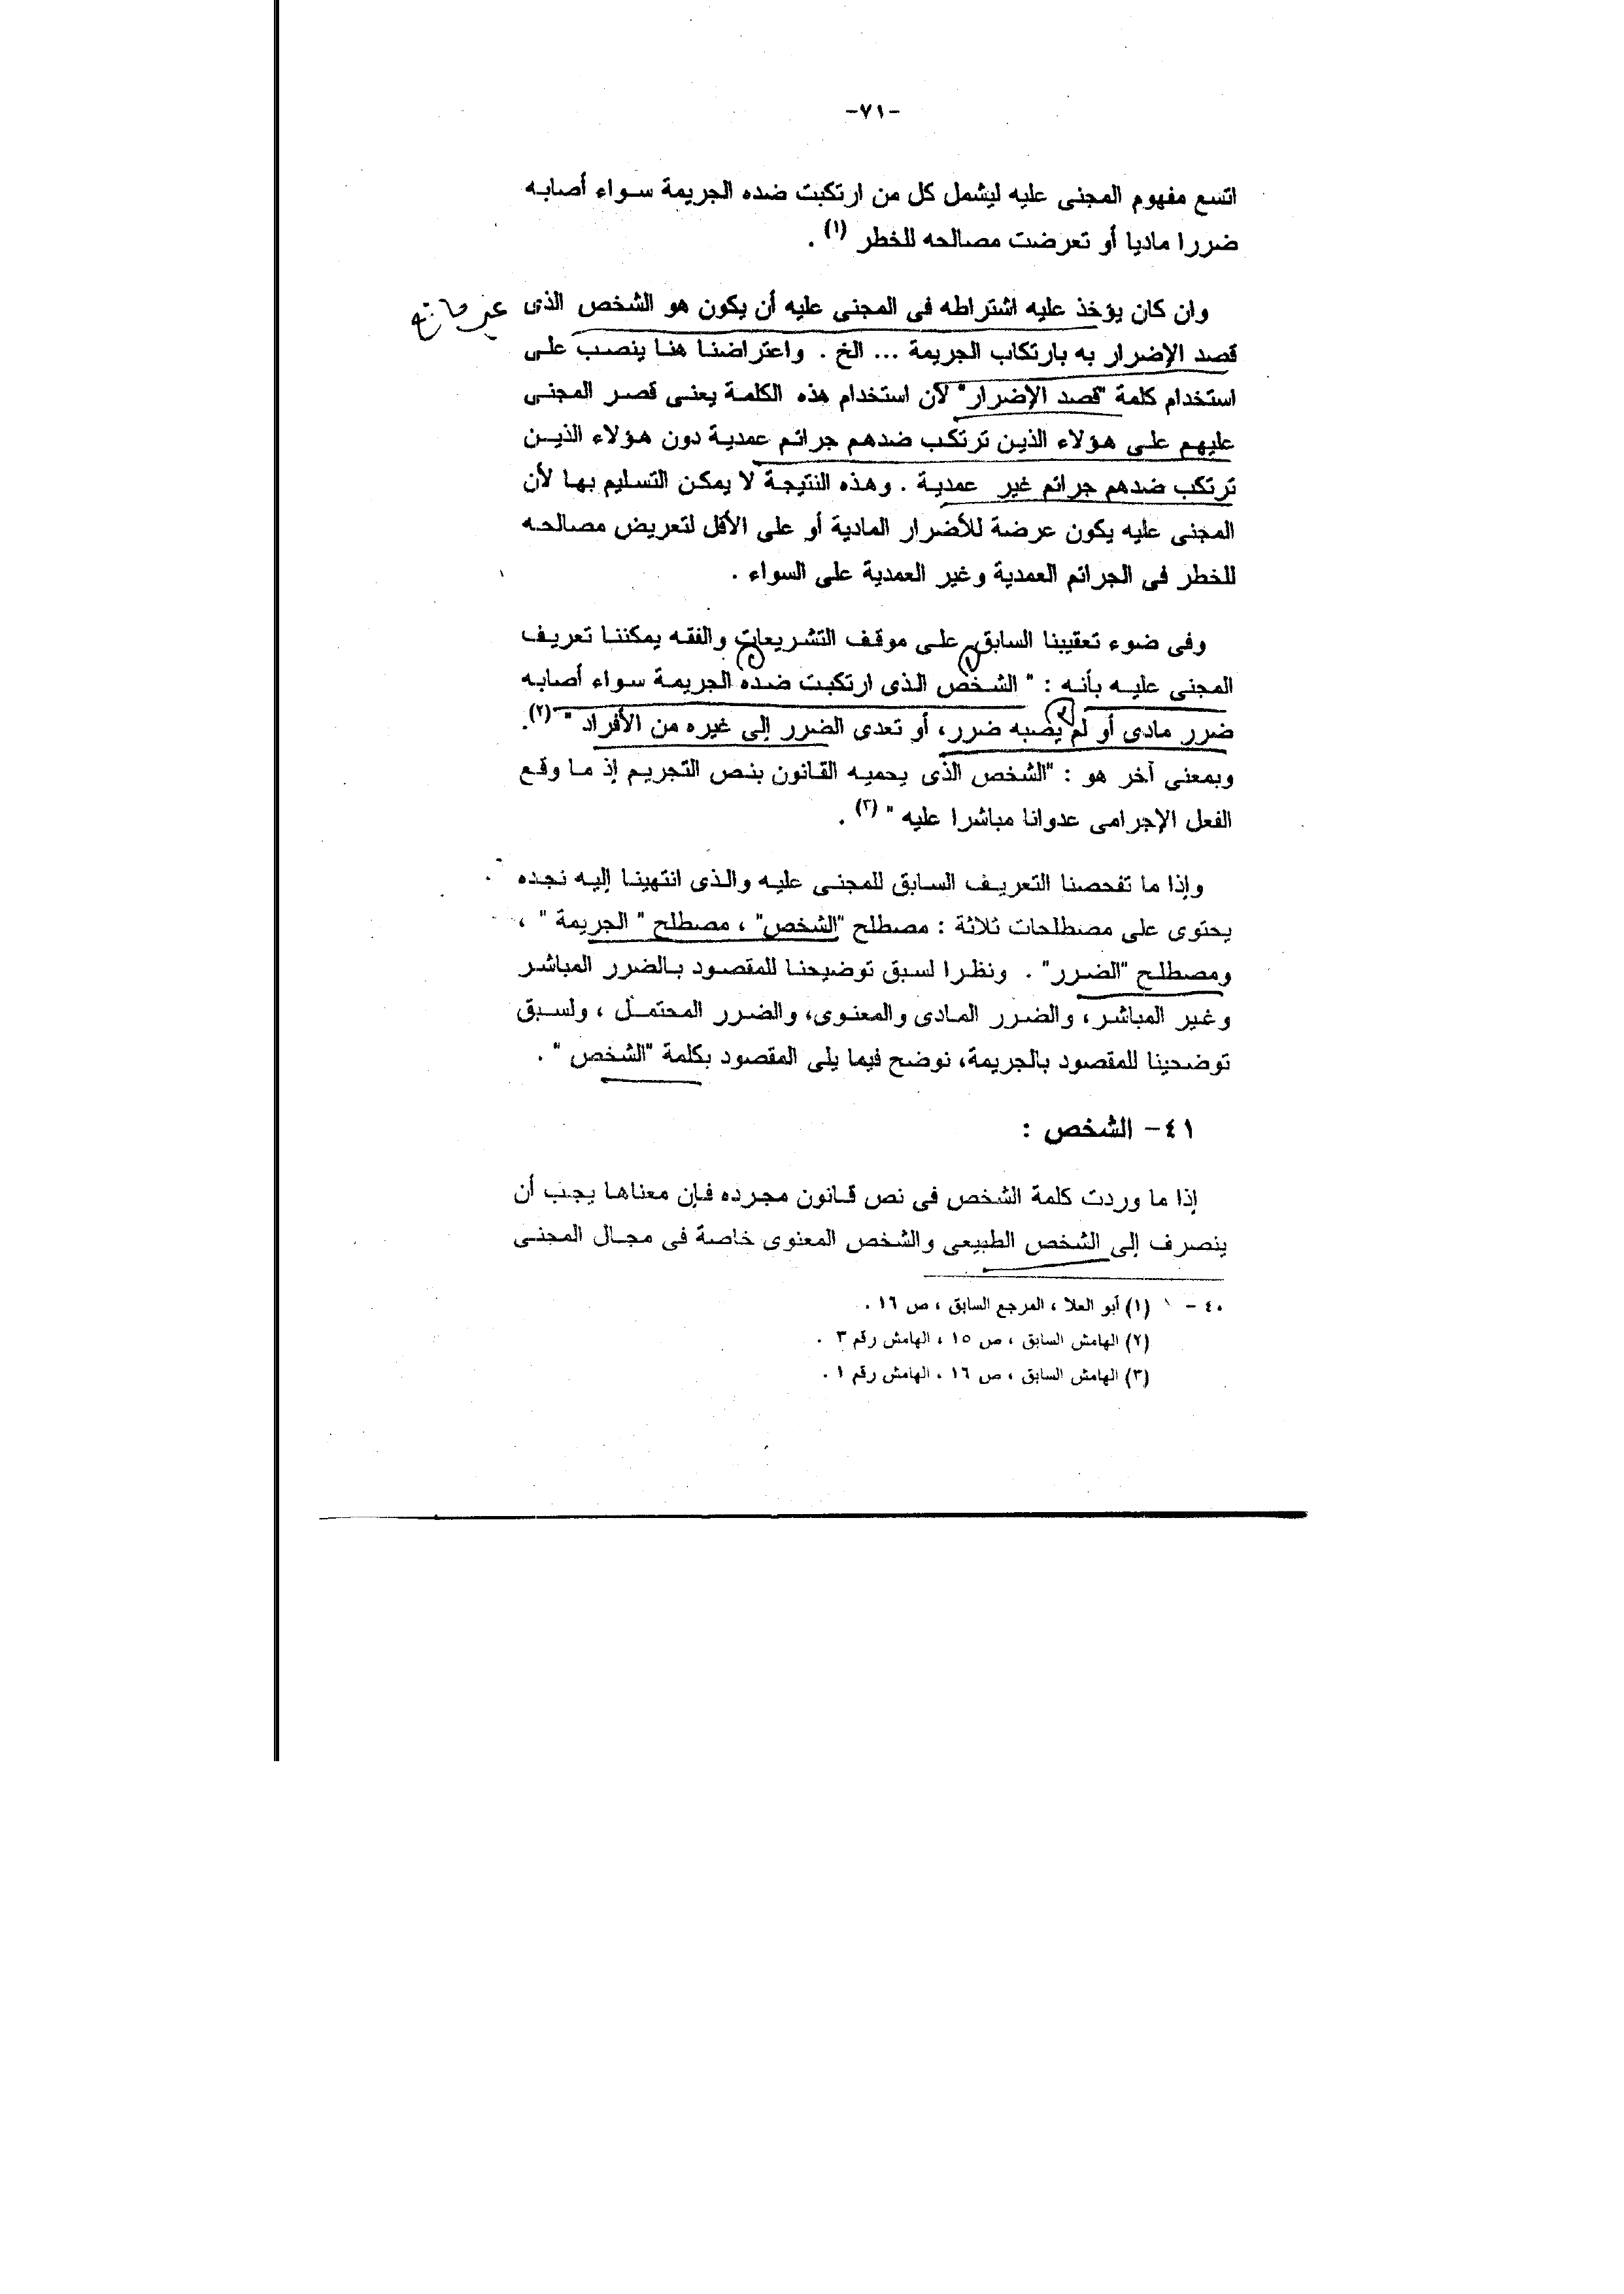 -٧١-
اتسع مفهوم المجنى عليه ليشمل كل من ارتكبت ضده الجريمة سواء أصابه
ضررا ماديا أو تعرضت مصالحه للخطر (١) .
وان كان يؤخذ عليه اشتراطه فى المجنى عليه أن يكون هو الشخص الذى
قصد الإضرار به بارتكاب الجريمة ... الخ . واعتراضنا هنا ينصب على
استخدام كلمة "قصد الإضرار" لأن استخدام هذه الكلمة يعنى قصر المجنى
عليهم على هؤلاء الذين ترتكب ضدهم جرائم عمدية دون هؤلاء الذين
ترتكب ضدهم جرائم غير عمدية . وهذه النتيجة لا يمكن التسليم بها لأن
المجنى عليه يكون عرضة للأضرار المادية أو على الأقل لتعريض مصالحه
للخطر فى الجرائم العمدية وغير العمدية على السواء .
وفى ضوء تعقيبنا السابق على موقف التشريعات والفقه يمكننا تعريف
المجنى عليه بأنه : " الشخص الذى ارتكبت ضده الجريمة سواء أصابه
ضرر مادى أو لم يصبه ضرر، أو تعدى الضرر إلى غيره من الأفراد " (٢).
وبمعنى آخر هو : "الشخص الذى يحميه القانون بنص التجريم إذ ما وقع
الفعل الإجرامى عدوانا مباشرا عليه " (٣) .
وإذا ما تفحصنا التعريف السابق للمجنى عليه والذى انتهينا إليه نجده
يحتوى على مصطلحات ثلاثة : مصطلح "الشخص" ، مصطلح " الجريمة " ،
ومصطلح "الضرر" . ونظرا لسبق توضيحنا للمقصود بالضرر المباشر
وغير المباشر، والضرر المادى والمعنوى، والضرر المحتمل ، ولسبق
توضحينا للمقصود بالجريمة، نوضح فيما يلى المقصود بكلمة "الشخص " .
٤١- الشخص :
إذا ما وردت كلمة الشخص فى نص قانون مجرده فإن معناها يجب أن
ينصرف إلى الشخص الطبيعى والشخص المعنوى خاصة فى مجال المجنى
٤٠ - (١) أبو العلا ، المرجع السابق ، ص ١٦ .
(٢) الهامش السابق ، ص ١٥ ، الهامش رقم ٣ .
(٣) الهامش السابق ، ص ١٦ ، الهامش رقم ١ .